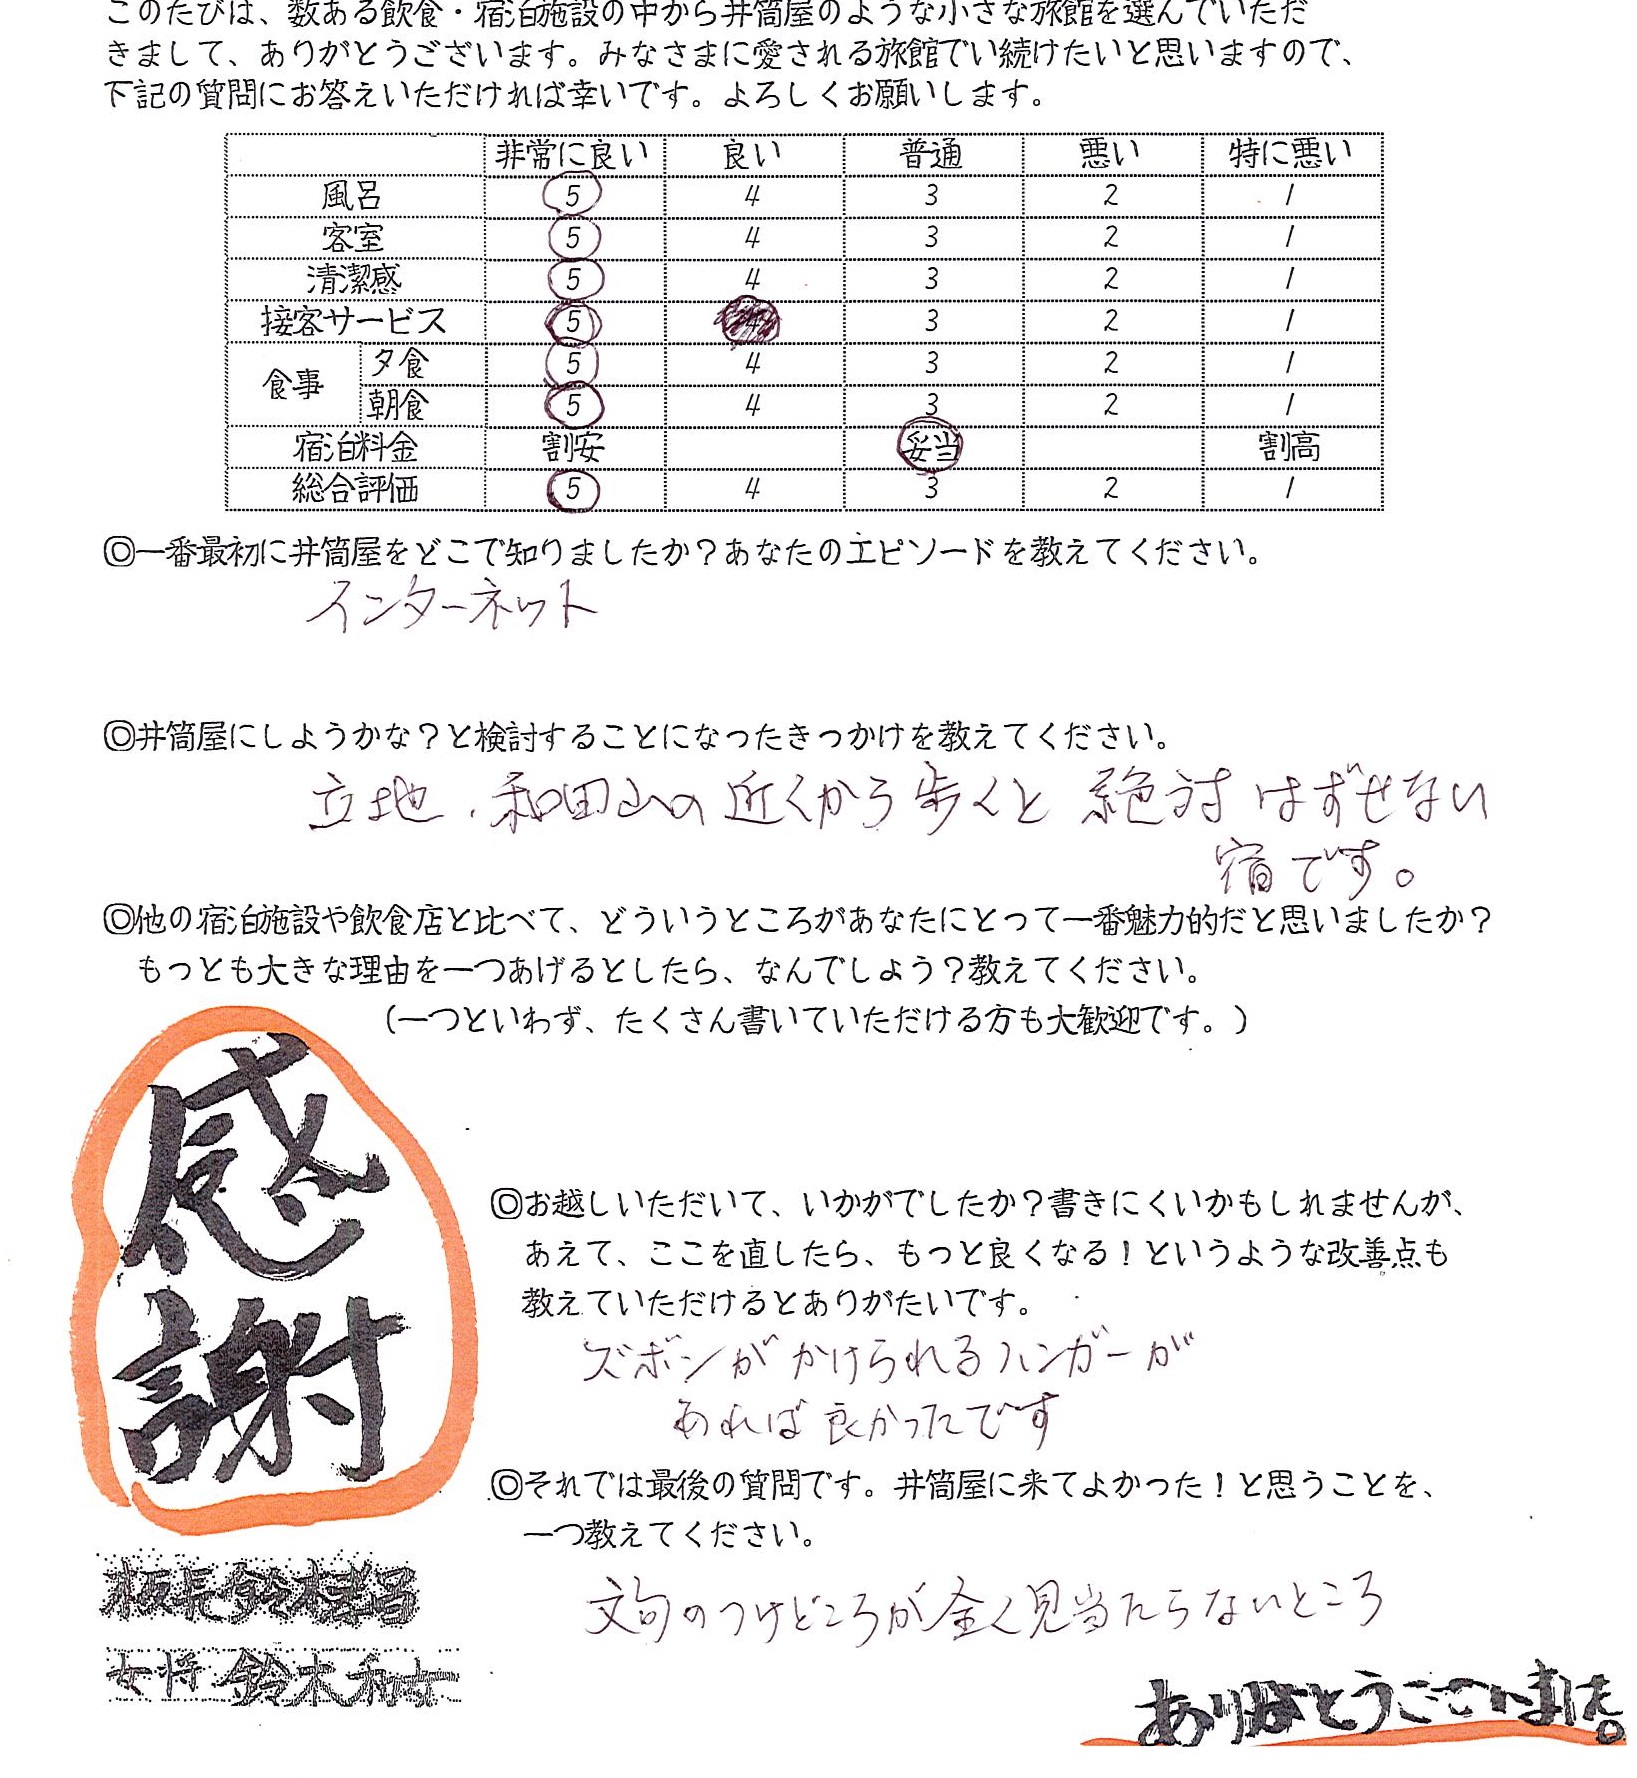 このたびは、数ある飲食・宿泊施設の中から井筒屋のような小さな旅館を選んでいただ
きまして、ありがとうございます。みなさまに愛される旅館でい続けたいと思いますので、
下記の質問にお答えいただければ幸いです。よろしくお願いします。
非常に良い 良い 普通 悪い 特に悪い
風呂 5 4 3 2 1
客室 5 4 3 2 1
清潔感 5 4 3 2 1
接客サービス 5 4 3 2 1
食事
夕食 5 4 3 2 1
朝食 5 4 3 2 1
宿泊料金 割安 妥当 割高
総合評価 5 4 3 2 1
◎一番最初に井筒屋をどこで知りましたか？あなたのエピソードを教えてください。
インターネット
◎井筒屋にしようかな？と検討することになったきっかけを教えてください。
立地、和田山の近くから歩くと 絶対はずせない
宿です。
◎他の宿泊施設や飲食店と比べて、どういうところがあなたにとって一番魅力的だと思いましたか？
もっとも大きな理由を一つあげるとしたら、なんでしょう？教えてください。
（一つといわず、たくさん書いていただける方も大歓迎です。）
感謝
◎お越しいただいて、いかがでしたか？書きにくいかもしれませんが、
あえて、ここを直したら、もっと良くなる！というような改善点も
教えていただけるとありがたいです。
ズボンがかけられるハンガーが
あれば良かったです
◎それでは最後の質問です。井筒屋に来てよかった！と思うことを、
一つ教えてください。
文句のつけどころが全く見当たらないところ
板長 鈴木
女将 鈴木
ありがとうございました。